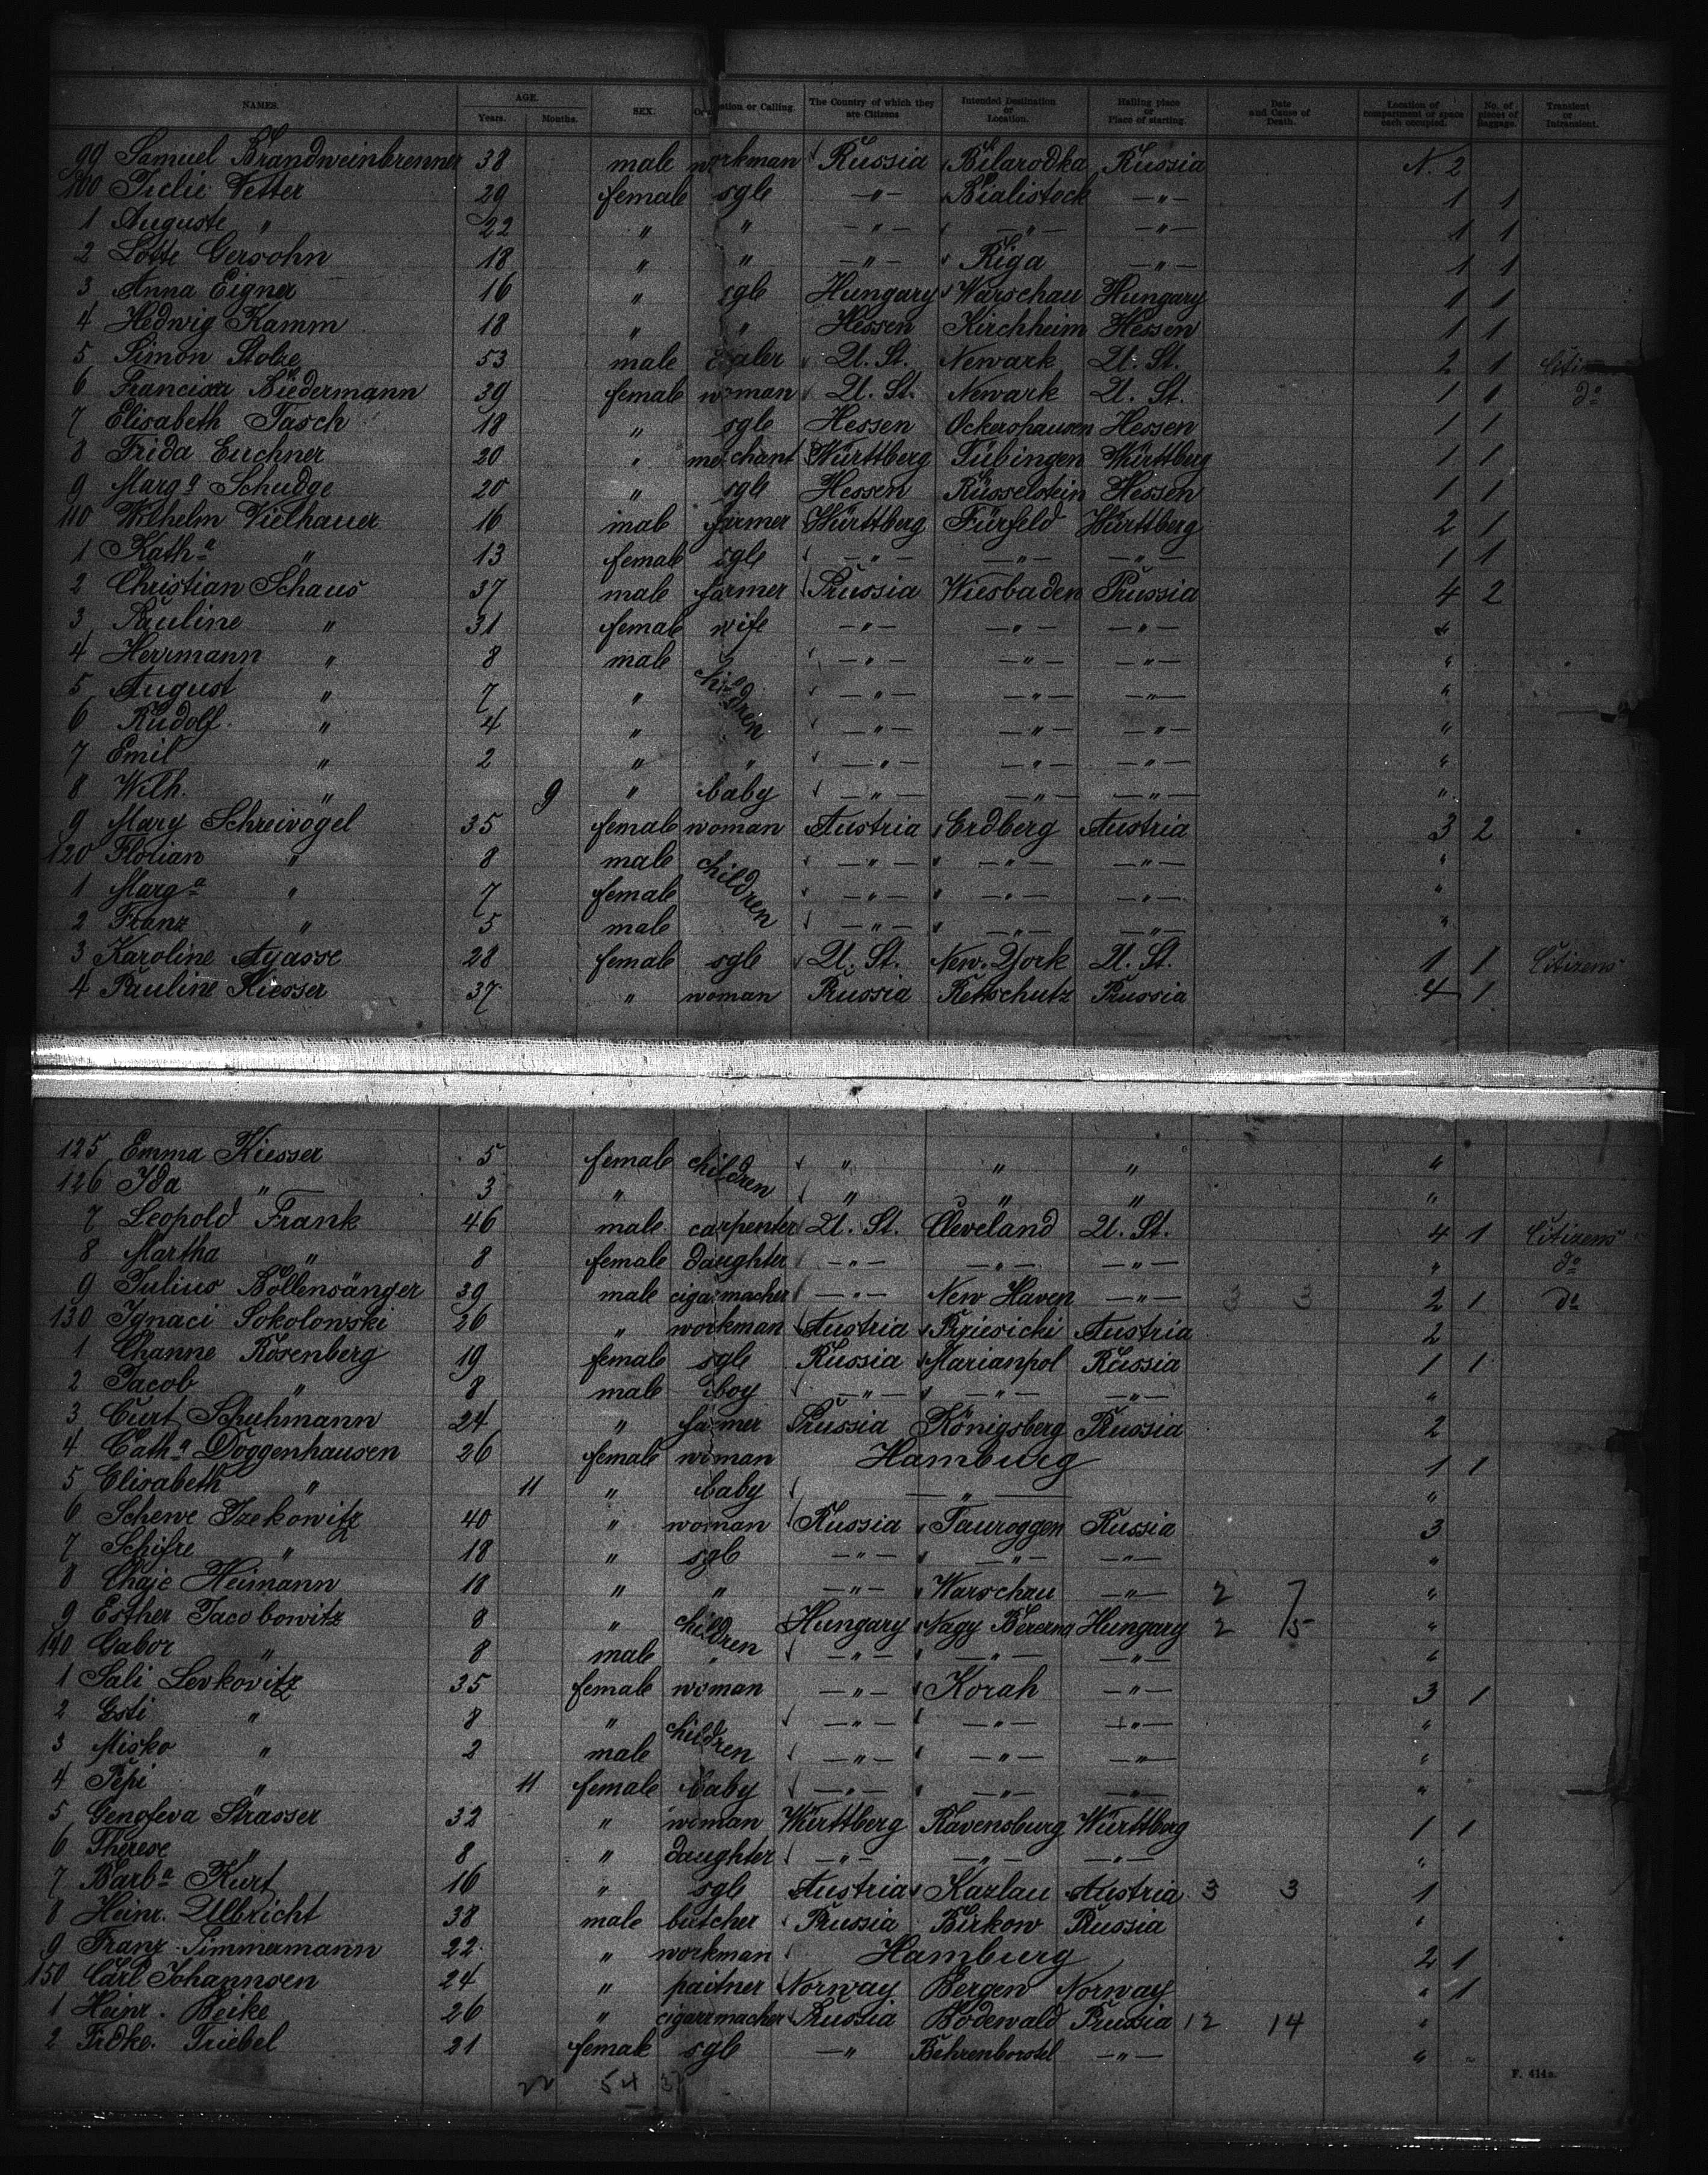 NAMES. AGE. Years. Months. SEX. Occupation or Calling. The Country of which they are Citizens Intended Destination or Location. Halling place or Place of starting. Date and Cause of Death. Location of compartment or space each occupied. No. of pieces of Baggage. Transient or Intransient.
99 Samuel Brandweinbrenner 38 male workman Russia Bilarodka Russia N. 2
100 Julie Vetter 29 female sgle —〃— Bialistock —〃— 1 1
1 Auguste 〃 22 〃 〃 —〃— —〃— —〃— 1 1
2 Lotte Gersohn 18 〃 〃 —〃— Riga —〃— 1 1
3 Anna Eigner 16 〃 sgle Hungary Warschau Hungary 1 1
4 Hedwig Kamm 18 〃 〃 Hessen Kirchheim Hessen 1 1
5 Simon Stolze 53 male U. St. Newark U. St. 2 1
6 Biedermann 39 female woman U. St. Newark U. St. 1 1 do
7 Elisabeth Tasch 18 〃 sgle Hessen Ockershausen Hessen 1 1
8 Frida Euchner 20 〃 merchant Württberg Tübingen Württberg 1 1
9 Marga Schudge 20 〃 sgle Hessen Rüsselstein Hessen 1 1
110 Wilhelm Vielhauer 16 male farmer Württberg Fürfeld Württberg 2 1
1 Katha 〃 13 female sgle —〃— —〃— —〃— 1 1
2 Christian Schaus 37 male farmer Prussia Wiesbaden Prussia 4 2
3 Pauline 〃 31 female wife —〃— —〃— —〃— 〃
4 Herrmann 〃 8 male children —〃— —〃— —〃— 〃
5 August 〃 7 〃 —〃— —〃— —〃— 〃
6 Rudolf 〃 4 〃 —〃— —〃— —〃— 〃
7 Emil 〃 2 〃 〃 —〃— —〃— —〃— 〃
8 Wilh. 〃 9 〃 baby —〃— —〃— —〃— 〃
9 Mary Schreivogel 35 female woman Austria Erdberg Austria 3 2
120 Florian 〃 8 male children —〃— —〃— —〃— 〃
1 Marga 〃 7 female —〃— —〃— —〃— 〃
2 Franz 〃 5 male —〃— —〃— —〃— 〃
3 Karoline Ayasse 28 female sgle U. St. New. York U. St. 1 1 Citizens
4 Pauline Kiesser 37 〃 woman Prussia Prussia 4 1
125 Emma Kiesser 5 female children 〃 〃 〃 〃
126 Ida 〃 3 〃 〃 〃 〃 〃
7 Leopold Frank 46 male carpenter U. St. Cleveland U. St. 4 1 Citizens
8 Martha 〃 8 female daughter —〃— —〃— —〃— 〃 do
9 Julius Böllensänger 39 male cigarmacher —〃— New Haven —〃— 3 3 2 1 do
130 Ignaci Sokolowski 26 〃 workman Austria Prziesicki Austria 2
1 Channe Rosenberg 19 female sgle Russia Marianpol Russia 1 1
2 Jacob 〃 8 male boy —〃— —〃— —〃— 〃
3 Curt Schuhmann 24 〃 farmer Prussia Königsberg Prussia 2
4 Catha Doggenhausen 26 female woman Hamburg 1 1
5 Elisabeth 〃 11 〃 baby —〃— 〃
6 Schewe Izekowitz 40 〃 woman Russia Tauroggen Russia 3
7 Schifre 〃 18 〃 sgle —〃— —〃— —〃— 〃
8 Chaje Heimann 18 〃 〃 —〃— Warschau —〃— 2 7 〃
9 Esther Jacobowitz 8 〃 children Hungary Nagy Hungary 2 15 〃
140 Gabor 〃 8 male 〃 —〃— —〃— —〃— 〃
1 Sali Levkovitz 35 female woman —〃— Korah —〃— 3 1
2 Esti 〃 8 〃 children —〃— —〃— —〃— 〃
3 Misko 〃 2 male —〃— —〃— —〃— 〃
4 Pepi 〃 11 female baby —〃— —〃— —〃— 〃
5 Genofeva Strasser 32 〃 woman Württberg Ravensburg Württberg 1 1
6 Therese 〃 8 〃 daughter —〃— —〃— —〃— 〃
7 Barba Kurt 16 〃 sgle Austria Kazlau Austria 3 3 1
8 Heinr. Ulbricht 38 male butcher Prussia Birkow Prussia 〃
9 Franz Timmermann 22 〃 workman Hamburg 2 1
150 Carl Johannsen 24 〃 paitner Norway Bergen Norway 〃 1
1 Heinr. Beike 26 〃 cigarrmacher Prussia Bodewald Prussia 12 14 〃
2 Frdke. Triebel 21 female sgle —〃 Behrenborstel —〃— 〃 〃
54
F. 414a.